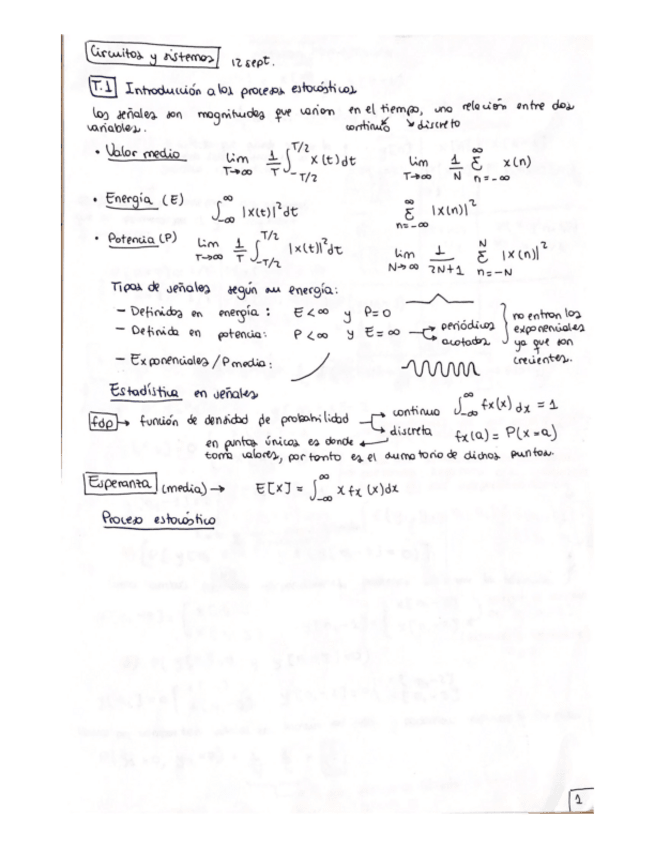 Circuitos y sistemas 12 sept.
T.1 Introducción a los procesos estocásticos
Las señales son magnitudes que varian en el tiempo, una relación entre dos
variables. continuo discreto
• Valor medio lim T→∞ 1/T ∫_{-T/2}^{T/2} x(t)dt lim T→∞ 1/N Σ_{n=-∞}^{∞} x(n)
• Energía (E) ∫_{-∞}^{∞} |x(t)|² dt Σ_{n=-∞}^{∞} |x(n)|²
• Potencia (P) lim T→∞ 1/T ∫_{-T/2}^{T/2} |x(t)|² dt lim N→∞ 1/(2N+1) Σ_{n=-N}^{N} |x(n)|²
Tipos de señales según su energía:
– Definidas en energía: E<∞ y P=0
– Definida en potencia: P<∞ y E=∞ → periódicas
→ acotadas
no entran los
exponenciales
ya que son
crecientes.
– Exponenciales / P media:
Estadística en señales
fdp → función de densidad de probabilidad → continua ∫_{-∞}^{∞} fx(x) dx = 1
→ discreta fx(a) = P(x=a)
en puntos únicos es donde
toma valores, por tanto es el sumatorio de dichos puntos.
Esperanza (media) → E[x] = ∫_{-∞}^{∞} x fx (x)dx
Proceso estocástico
1